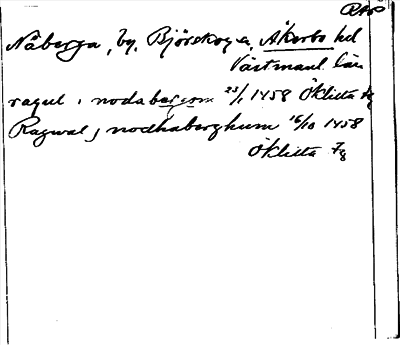 RAP
Näberga, by, Björskog sn, Åkerbo hd
Västmanl. län
ragul i nodabergom 23/1 1458 Öklista fg
Ragwal j nodhaberghum 16/10 1458
Öklista Fg